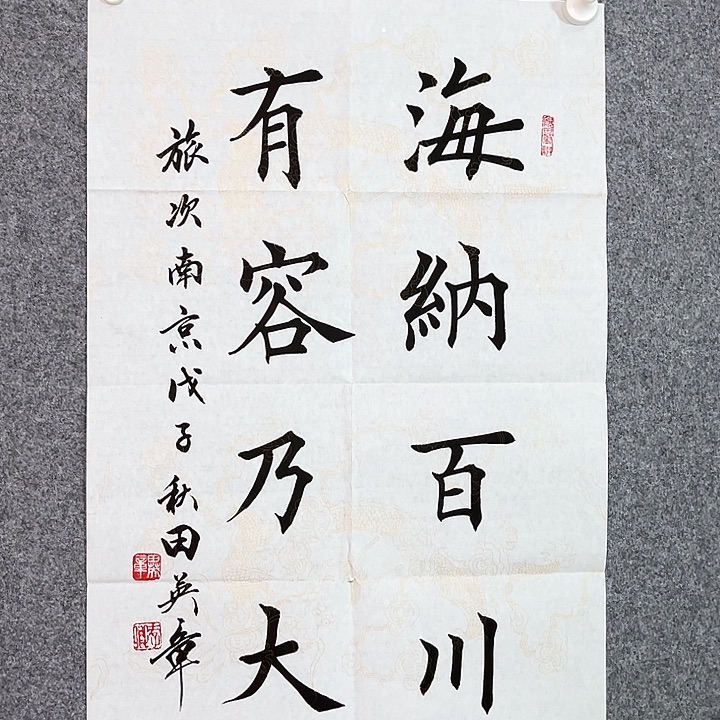 海納百川
有容乃大
旅次南京戊子秋田英章